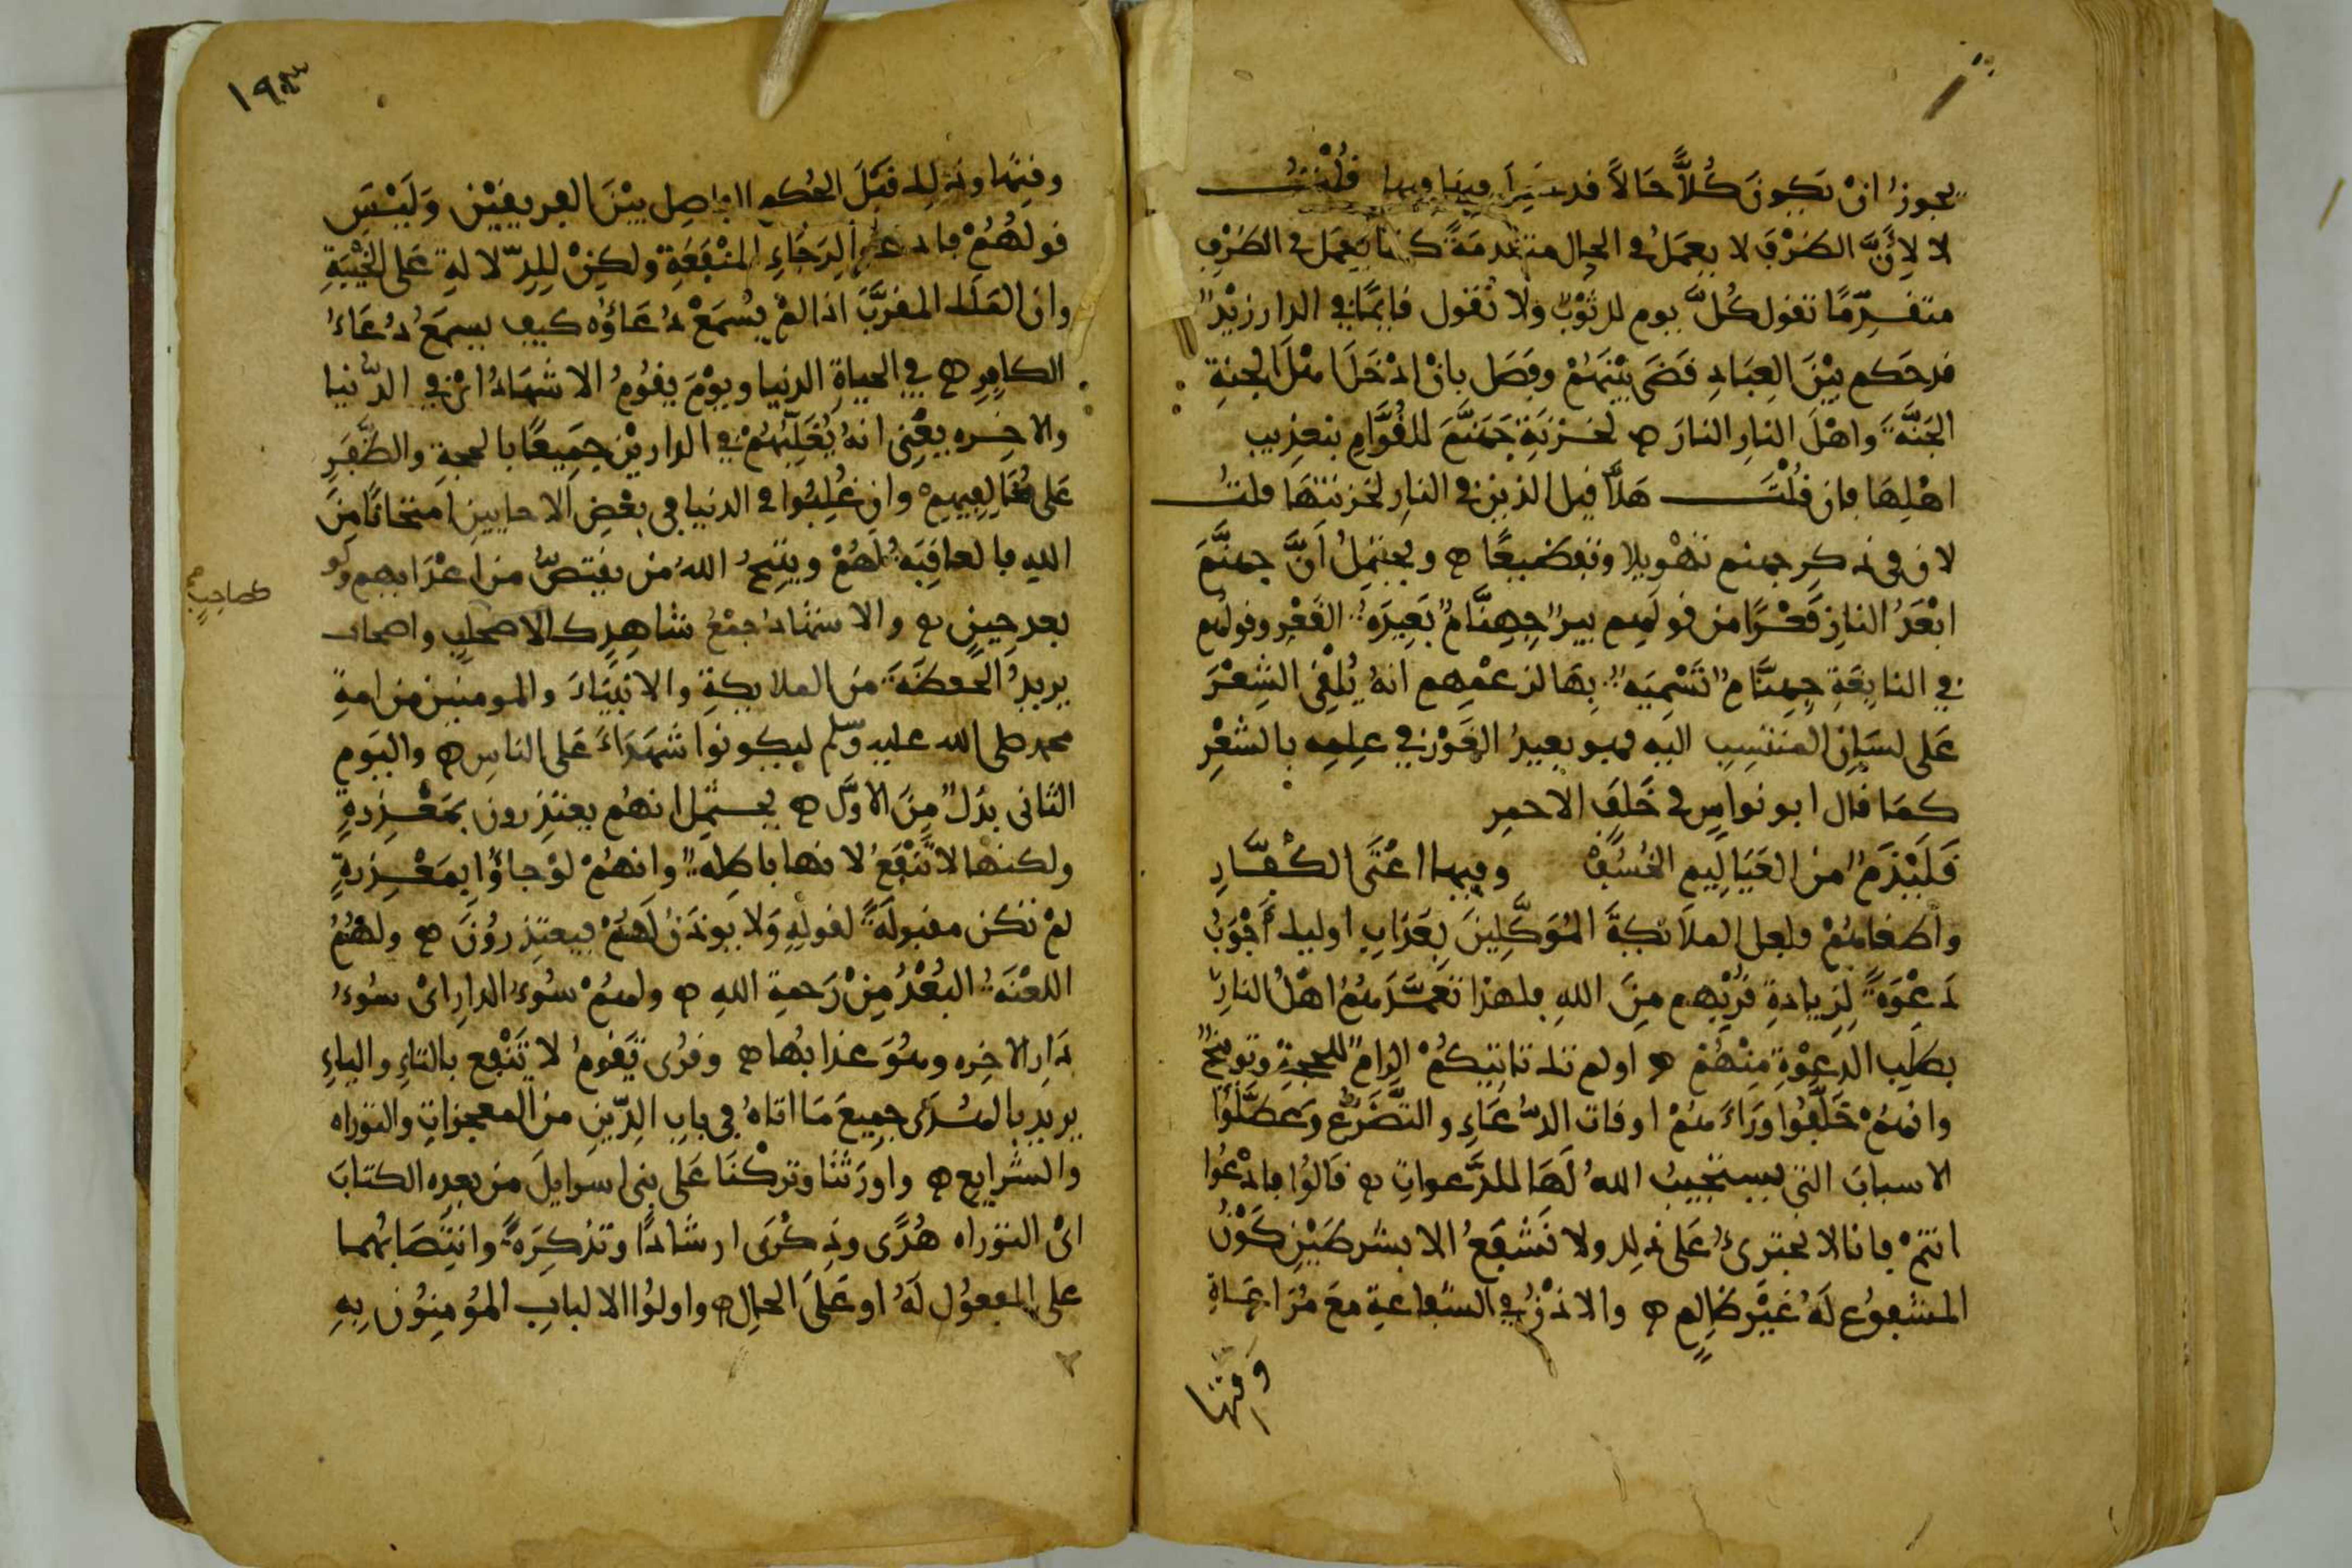 يجوز ان يكون كُلاًّ حَالاً قد سَيرا فيها وبها قُلْتُ
لا لِأَنَّ الظَرْفَ لا يعمَلُ في الحال متقدمَةً كما يَعمَل في الظَرْفِ
متقدِّمًا تقول كُلَّ يوم لك ثَوْبٌ ولا تَقول قايمًا في الدار زيْدٌ
قد حَكم بيْنَ العِبَادِ قَضَى بيْنَهُمْ وفَصَل بانْ ادْخَلَ اهْلَ الجنةِ
الجَنَّةَ واهْلَ النارِ النارَ ه لخَزنَةِ جَهَنَّمَ للقُوَّامِ بتعذيب
اهْلِهَا فان قُلْتَ هَلاَّ قيل الذين في النارِ لخزنتهَا قلتُ
لان في ذكر جهنم تَهْويلا وتفظيعًا ه ويحتمِلُ اَنَّ جهنَّمَ
ابْعَدُ النارِ قَعْرًا من قولهم بير جِهِنَّامٌ بَعِيدَةُ القَعْرِ وقولهم
في النابغَةِ جِهِنَّامٌ تَسْمِيَةً بِهَا لزعْمِهم انهُ يُلْقِى الشِعْرَ
عَلى لسَانِ المنتسِبِ اليه فهو بعيدُ الغَوْرِ في علمِه بالشعْرِ
كمَا قال ابو نواسٍ في خَلَفَ الاحمرِ
قَلَيْذَمٌ من العَيَالِيم الخُسُفْ وفيها اعْتَى الكُفَّارِ
وأطغاهُمْ فلعل الملاَئكةَ المُوَكَّلِينَ بِعَذَابِ اوليك أَجْوَبُ
دَعْوَةً لِزيادةِ قُرْبِهم مِنَ اللهِ فلهذا تَعَمَّدَهُمْ اهْلُ النارِ
بطلَبِ الدعْوَةِ مِنْهُمْ ه اولم تك تاتيكُمْ الزامٌ للحجةِ وتوبيخٌ
وانهُمْ خَلَّفُوا وَرَاءَهُمْ اوقات الدُّعَاءِ والتَّضَرُّع وَعَطَّلُوا
الاسبابَ التى يستجيبُ اللهُ لَهَا الدَّعواتِ ه قالُوا فادْعُوا
انتمْ فانا لا نجترئُ عَلى ذلك ولا نَشْفَعُ الا بشرطَيْنِ كَوْنُ
المشفوع لَهُ غيْر ظالمٍ ه والاذْنُ في الشفاعة معَ مُرَاعَاةِ
وَقتها
١٩٣
وقتها وذلك قبْلَ الحُكمِ الفاصِل بيْنَ الفريقيْن وَلَيْسَ
قولهُمْ فادعوا لِرَجَاءِ المنْفَعَةِ ولكِنْ لِلدِّلالةِ عَلى الخَيْبَةِ
وان المَلَك المقرَّبَ اذا لمْ يُسْمَعْ دُعَاؤُه كيف يسمَعُ دُعَاءُ
الكافِرِ ه في الحياةِ الدنيا ويوْمَ يقُومُ الاشهَادُ ايْ في الدُّنيا
والاخِره يعْنِى انهُ يُغَلِّبُهُمْ في الداريْن جَمِيعًا بالحجةِ والظَّفَرِ
عَلى مُخَالِفِيهِمْ وان غُلِبُوا في الدنيا في بعْضِ الاحايين امتحَانًا مِنَ
اللهِ فالعاقِبَةُ لهُمْ ويتيحُ اللهُ من يقتصُّ من اعْدَايهِم ولو
بعد حِينٍ ه والاشهَادُ جمْعُ شاهِدٍ كالاصحاب واصحاب
كصاحِبٍ
يريدُ الحَفظَةَ من الملايكةِ والانبيَاءَ والمومنين من امةِ
محمد صلى الله عليه وسلم ليكونوا شهَدَاءَ عَلى الناسِ ه واليَوم
الثانى بدَلٌ مِنَ الاوَّل ه يحتمِل انهُم يعتَذِرون بمَعْذِرةٍ
ولكنها لا تَنْفَعُ لانها باطِلَةٌ وانهُمْ لوْ جاؤُا بِمَعْذِرةٍ
لمْ تكن مقبولَةً لقولهِ وَلا يوذَنُ لَهُمْ فيعتذِروُنَ ه ولَهُمُ
اللعْنَةُ البُعْدُ مِنْ رَحمةِ اللهِ ه ولهُمْ سُوءُ الدارِ اىْ سُوءُ
دَارِ الاخِره وهُوَ عذابُها ه وقرُى تقومُ لا تَنْفع بالتاءِ والياءِ
يريد بالهُدَى جميعَ مَا اتاهُ في بابِ الدِّينِ من المعجزاتِ والتوراه
والشرايع ه واورَثْنَا وتركْنَا عَلى بنى اسرايلَ من بعدِه الكتابَ
اىْ التوراه هُدًى وذِكْرَى ارشادًا وتذكِرَةً وانتِصَابُهما
على المفعُول لَهُ او عَلَى الحال ه واولُوا الالبابِ المُومِنُون بِهِ